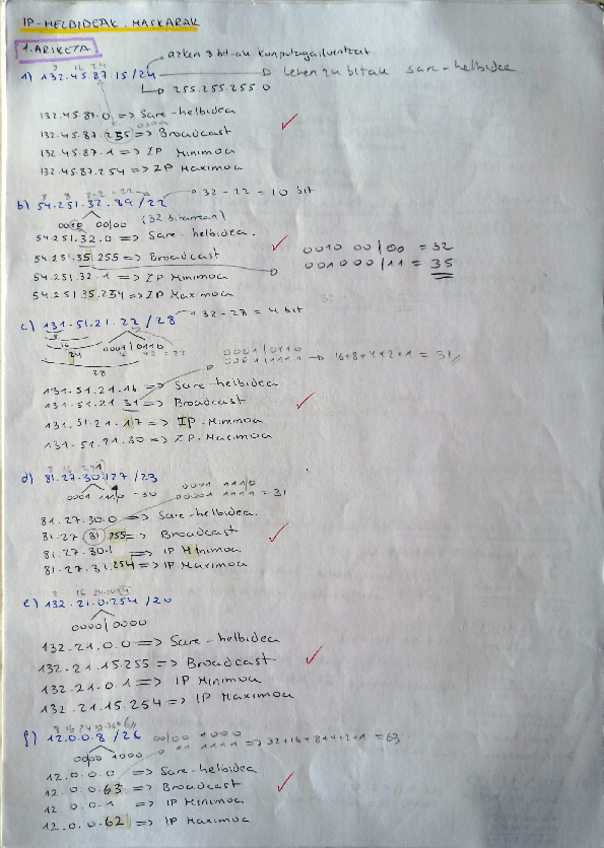 IP-HELBIDEAK. MASKARAK
1. ARIKETA
8 16 24
azken 8 bit-ak konputagailuentzat
1) 132.45.87.15/24
Lehen 24 bitak sare-helbidea
255.255.255.0
132.45.87.0 => Sare-helbidea
132.45.87.255 => Broadcast
132.45.87.1 => IP Minimoa
132.45.87.254 => IP Maximoa
b) 54.251.32.89/22
32-22=10 bit
0010 00|00 (32 bitarrean)
54.251.32.0 => Sare-helbidea.
54.251.35.255 => Broadcast
0010 00|00 = 32
0010 00|11 = 35
54.251.32.1 => IP Minimoa
54.251.35.254 => IP Maximoa
c) 131.51.21.22/28
32-28=4 bit
8
16
24
28
0001|0110
0001|0110
0001|1111 -> 16+8+4+2+1 = 31
131.51.21.16 => Sare-helbidea
131.51.21.31 => Broadcast
131.51.21.17 => IP.Minimoa
131.51.21.30 => IP.Maximoa
d) 81.27.30.127/23
0001 1110 = 30
0001 1110
0001 1111 = 31
81.27.30.0 => Sare-helbidea.
81.27.31.255 => Broadcast
81.27.30.1 => IP Minimoa
81.27.31.254 => IP Maximoa
e) 132.21.0.254/20
0000|0000
132.21.0.0 => Sare-helbidea
132.21.15.255 => Broadcast
132.21.0.1 => IP Minimoa
132.21.15.254 => IP Maximoa
f) 12.0.0.8/26
00|00 1000
00|00 1000
11 1111 => 32+16+8+4+2+1 = 63
12.0.0.0 => Sare-helbidea
12.0.0.63 => Broadcast
12.0.0.1 => IP Minimoa
12.0.0.62 => IP Maximoa